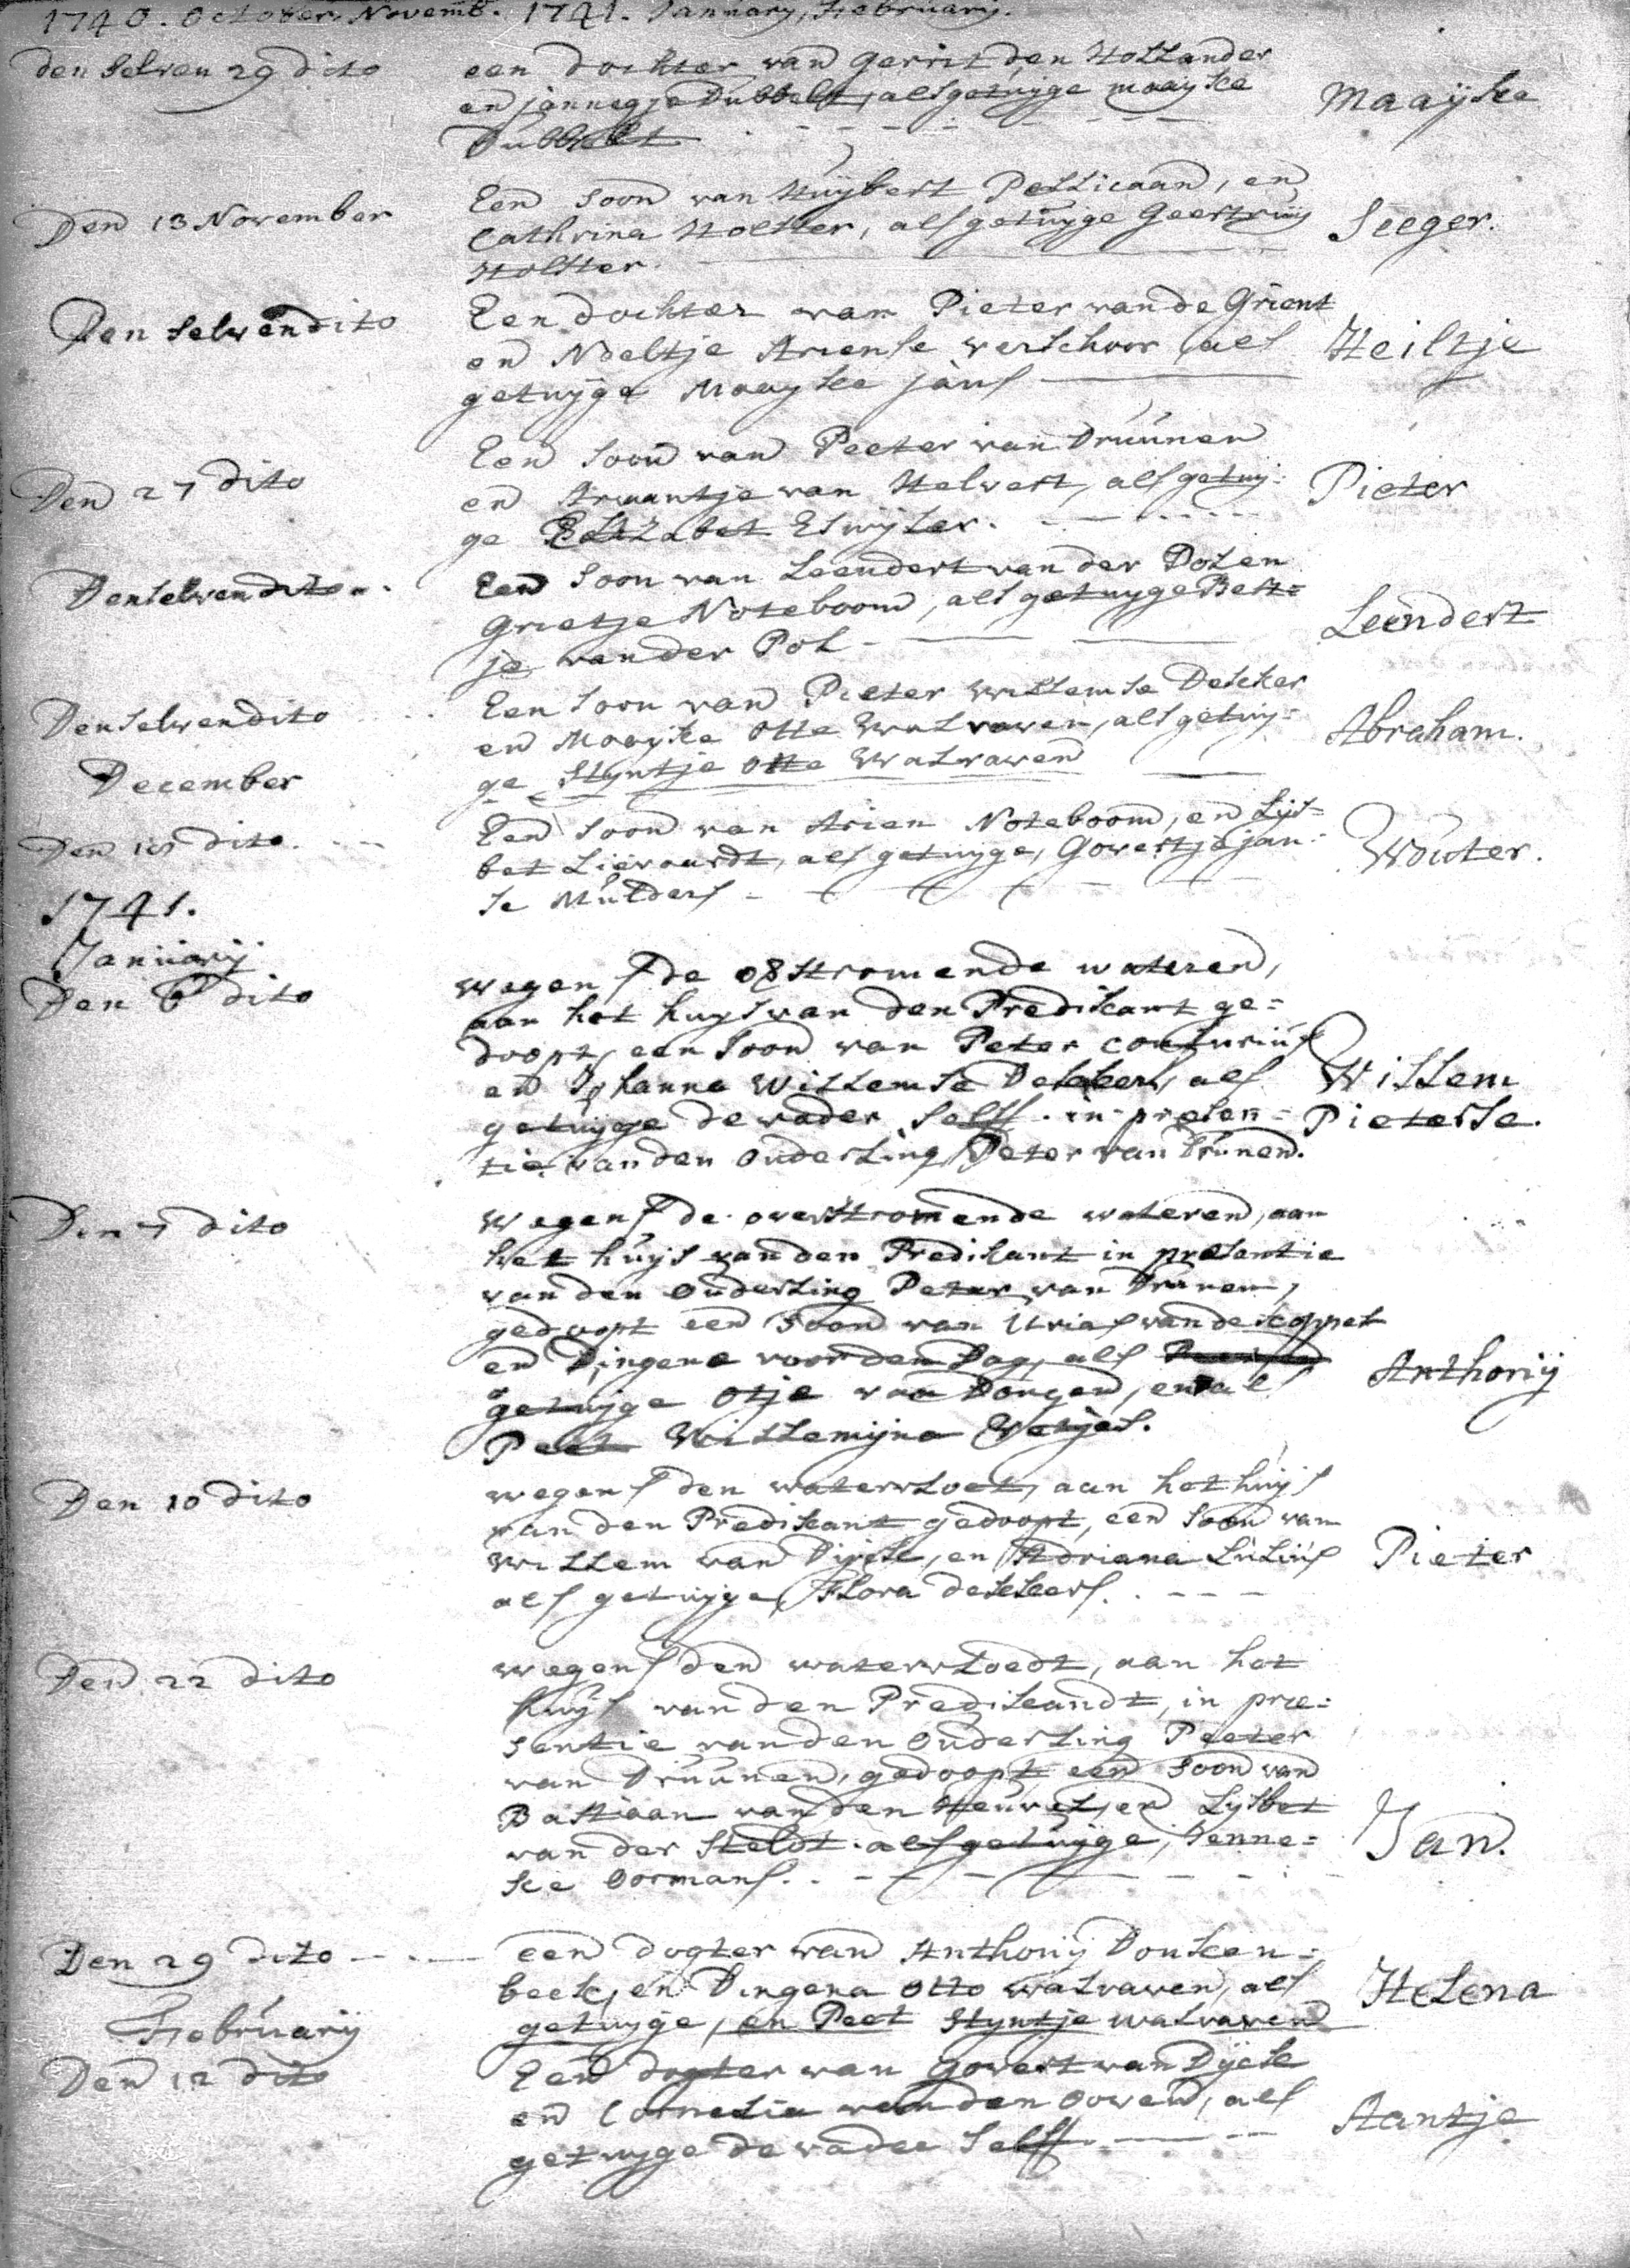 1740. October, Novemb. 1741. January, February.
den selven 29 dito
een dochter van Gerrit den Hollander
en jannegje Dubbelt, als getuijge maayke
Dubbelt
Maayke
Den 13 November
Een soon van Huijbert Pellicaan, en
Cathrina Holster, als getuijge Geertruij
Holster.
Seeger.
Den selven dito
Een dochter van Pieter van de Grient
en Neeltje Ariense verschoor, als
getuijge Maayke jans
Heiltje
Den 27 dito
Een soon van Peeter van Druunen
en Arjaantje van Helvert, als getuij=
ge Elizabet Elwijler.
Pieter
Den selven dito
Een soon van Leendert van der Polen
Grietje Noteboom, als getuyge Bett=
je van der Pol
Leendert
Den selven dito
Een soon van Pieter Willemse Decker
en Maayke Otte Walraven, als getuy=
ge Styntje Otte Walraven
Abraham.
December
Den dito
Een soon van Arien Noteboom, en Lijs=
bet Lievaardt, als getuyge, Govertje jan=
se Mulders
Wouter.
1741.
January
Den 6 dito
Wegens de overstromende wateren,
aan het huys van den Predikant ge=
doopt, een soon van Peter
en Johanna Willemse Dekkers, als
getuyge de vader selff. in presen=
tie van den Ouderling Peter van Drunen.
Willem
Pieterse.
Den 7 dito
Wegens de overstromende wateren, aan
het huijs van den Predikant in presentie
van den Ouderling Peter van Drunen,
gedoopt een soon van Urias van de koppel
en Dingena voor den Dag, als
getuijge Otje van Dongen, en als
Peet Willemijna Wetijes.
Anthonij
Den 10 dito
wegens den watervloet, aan het huijs
van den Predikant gedoopt, een soon van
Willem van Dijcke, en Adriana
als getuijge, Flora dekkers.
Pieter
Den 22 dito
Wegens den watervloedt, aan het
huijs van den Predikandt, in pre=
sentie van den Ouderling Peeter
van Druunen, gedoopt een soon van
Bastiaan van den Heuvel, en Lijsbet
van der Steldt. als getuijge, Jenne=
ke Oormans.
Jan.
Den 29 dito
een dogter van Anthonij Donken=
beek, en Dingena Otto walraven, als
getuyge, en Peet Styntje walraven
Helena
February
Den 12 dito
Een dogter van Govert van Dijcke
en Cornelia van den Oowen, als
getuyge de vader selff
Aantje